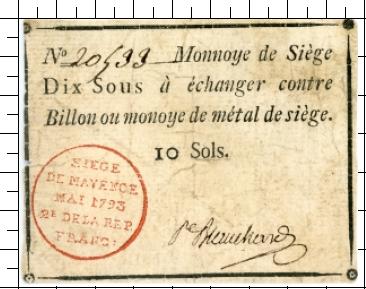 N° 20,533 Monnoye de Siège
Dix Sous à échanger contre
Billon ou monoye de métal de siège.
10 Sols.
SIEGE
DE MAYENCE
MAI 1793
2E DE LA REP.
FRANC: